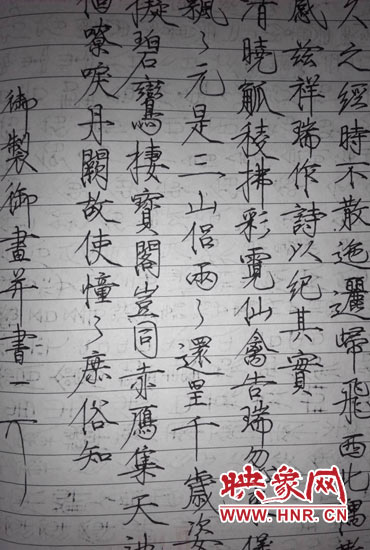 久之經時不散迤邐歸飛西北隅
感茲祥瑞作詩以紀其實
清曉觚稜拂彩霓仙禽告瑞忽
飄々元是三山侶兩々還呈千歲姿
擬碧鸞棲寶閣豈同赤鴈集天池
徊嘹唳丹闕故使憧々庶俗知
御製御畫并書
映象网
WWW.HNR.CN